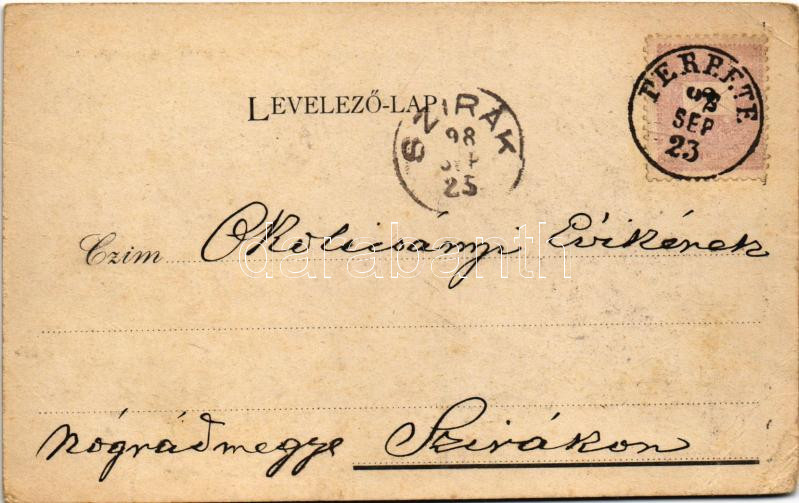 LEVELEZŐ-LAP
SZIRÁK
98
SEP
25
TEREBETE
98
SEP
23
Czim Okolicsányi Évikének
darabanth
Nógrádmegye Szirákon